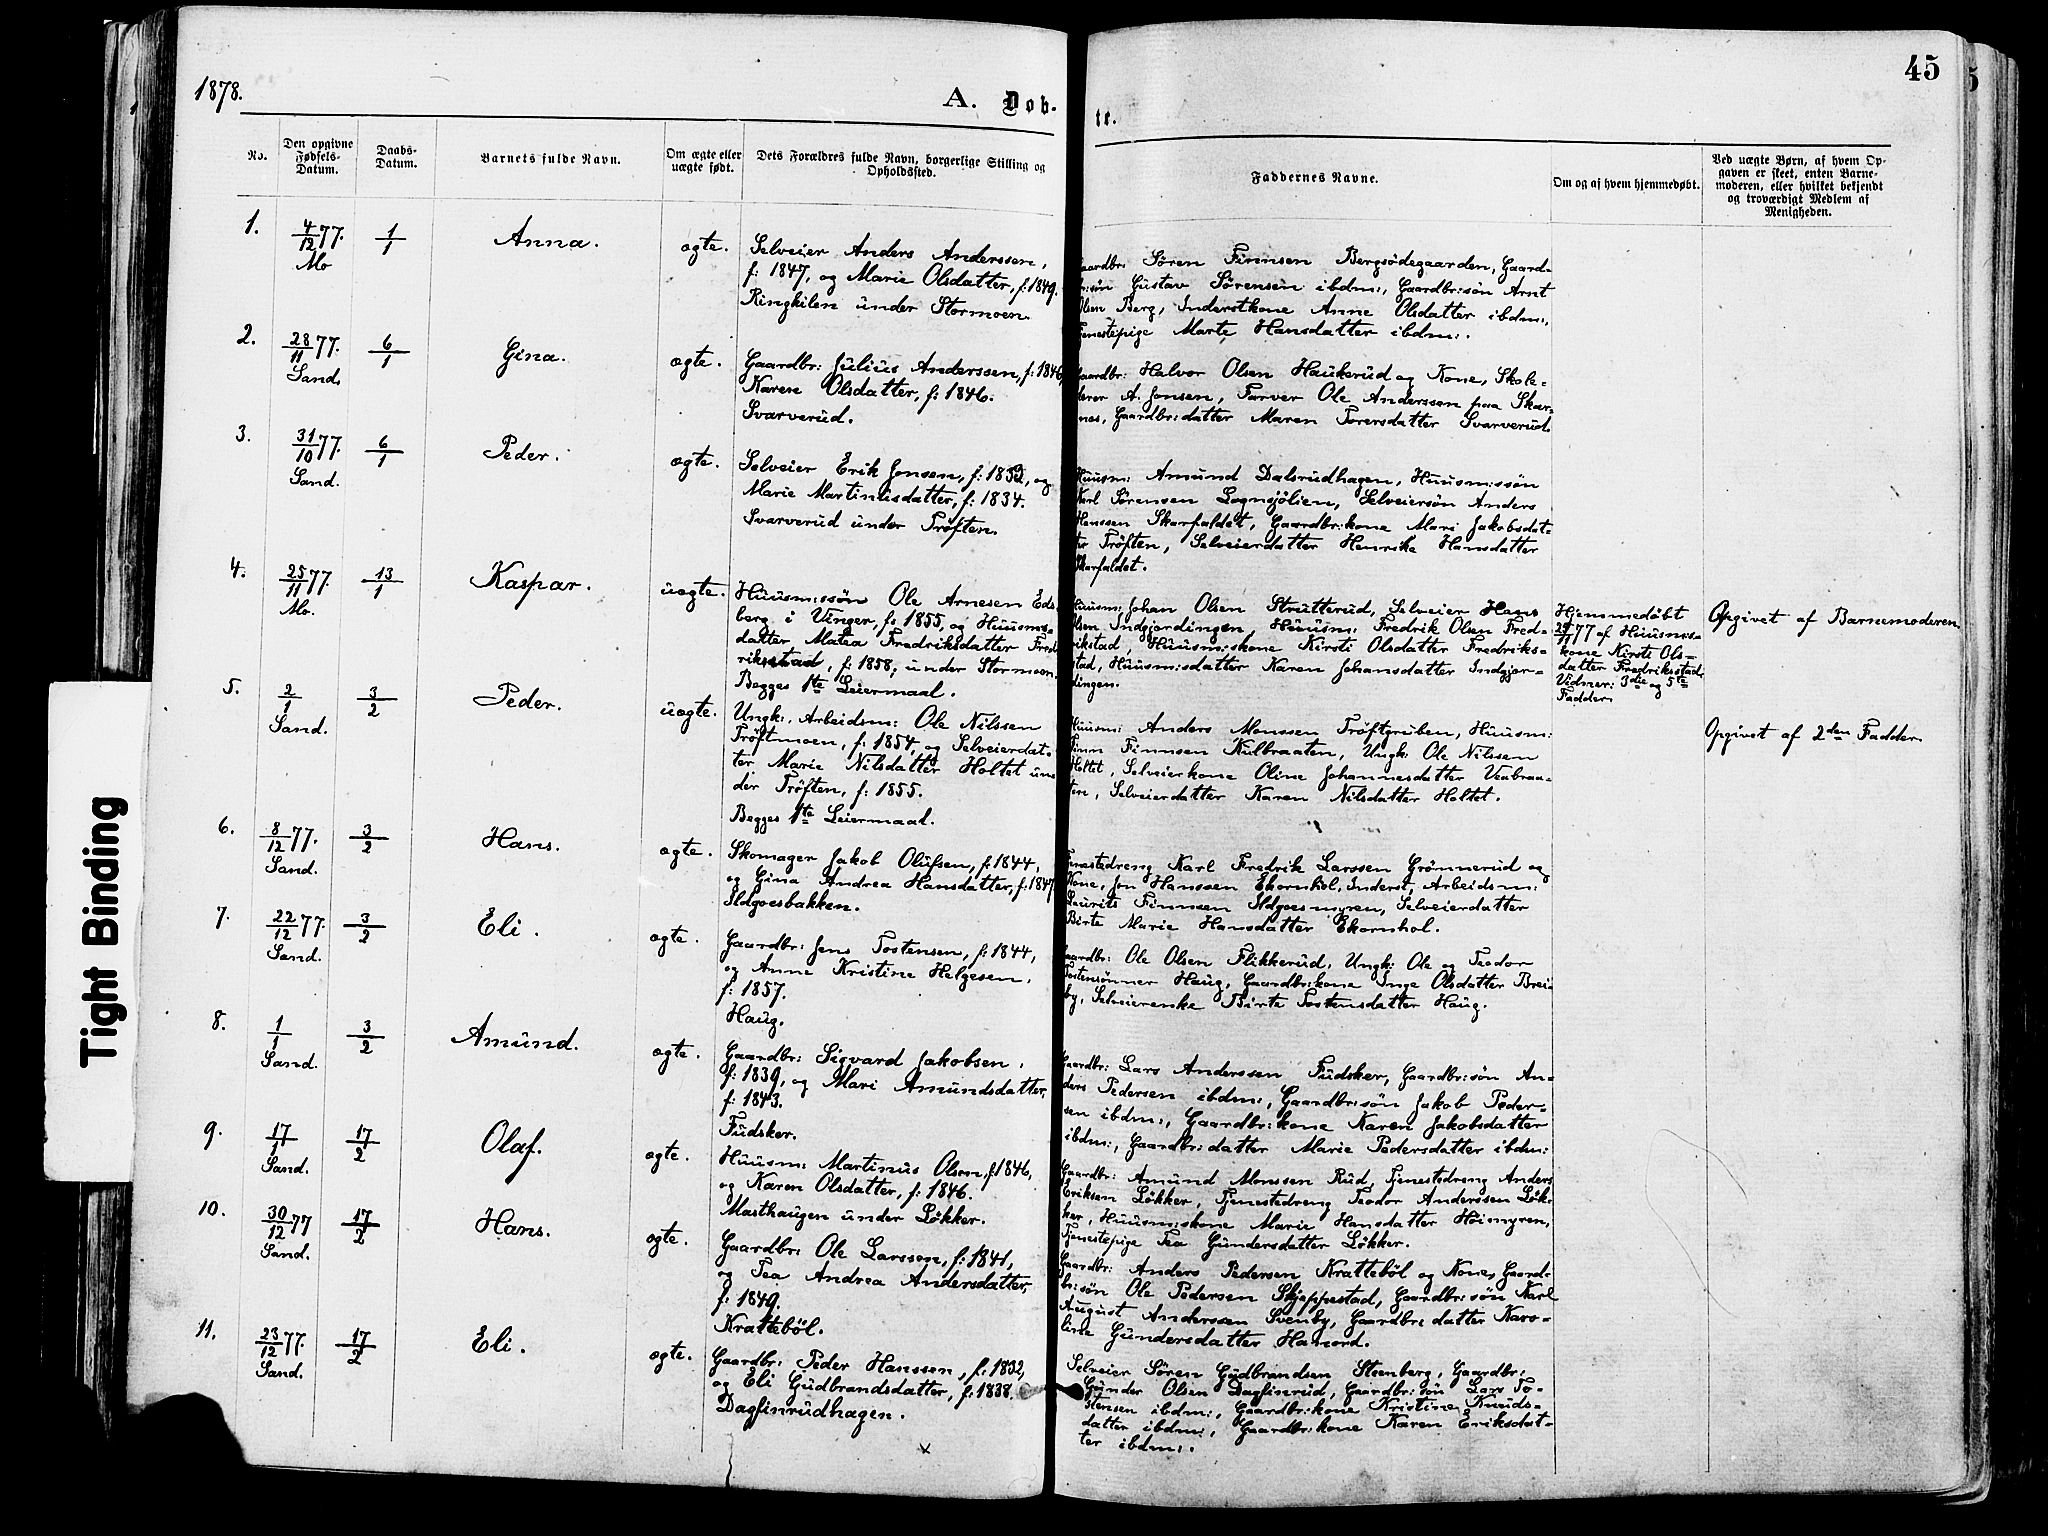 1878.
A. Døb-
te.
45
No.
Den opgivne Fødsels-Datum.
Daabs-Datum.
Barnets fulde Navn.
Om ægte eller uægte født.
Dets Forældres fulde Navn, borgerlige Stilling og Opholdssted.
Faddernes Navne.
Om og af hvem hjemmedøbt.
Ved uægte Børn, af hvem Op-
gaven er skeet, enten Barne-
moderen, eller hvilket bekjendt
og troværdigt Medlem af
Menigheden.
1.
4/12 77.
Mo
1/1
Anna.
ægte.
Selveier Anders Anderssen,
f: 1847, og Marie Olsdatter, f: 1849.
Ringkilen under Stormoen.
Gaardbr: Sören Finnsen Bergsödegaarden, Gaard-
br:sön Gustav Sörensen ibdm:, Gaardbr:sön Arnt
Olsen Berg, Inderstkone Anne Olsdatter ibdm:,
Tjenestepige Marte Hansdatter ibdm:.
2.
28/11 77.
Sand.
6/1
Gina.
ægte.
Gaardbr: Julius Anderssen, f: 1846,
Karen Olsdatter, f: 1846.
Svarverud.
Gaardbr: Halvor Olsen Haukerud og Kone, Skole-
lærer A. Jonsen, Farver Ole Anderssen paa Skar-
nes, Gaardbr:datter Maren Torersdatter Svarverud.
3.
31/10 77.
Sand.
6/1
Peder.
ægte.
Selveier Erik Jonsen, f: 1832, og
Marie Martinusdatter, f: 1834.
Svarverud under Tröften.
Huusm: Amund Dalsrudhagen, Huusm:ssön
Karl Sörensen Lognsjölien, Selveiersön Anders
Hanssen Skarfaldet, Gaardbr:kone Mari Jakobsdat-
ter Tröften, Selveierdatter Henrika Hansdatter
Skarfaldet.
4.
25/11 77.
Mo.
13/1
Kaspar.
uægte.
Huusm:ssön Ole Arnesen Eds-
berg i Vinger, f: 1855, og Huusms-
datter Matea Fredriksdatter Fred-
riksstad, f: 1858, under Stormoen.
Begges 1te Leiermaal.
Huusm: Johan Olsen Strutterud, Selveier Hans
Olsen Indgjordingen, Huusm: Fredrik Olsen Fred-
rikstad, Huusm:skone Kirsti Olsdatter Fredriks-
stad, Huusm:sdatter Karen Johansdatter Indgjor-
dingen.
Hjemmedöbt
29/11 77 af Huusms-
kone Kirsti Ols-
datter Fredriksstad.
Vidner: 3die og 5te
Fadder.
Opgivet af Barnemoderen.
5.
2/1
Sand.
3/2
Peder.
uægte.
Ungk: Arbeidsm: Ole Nilssen
Tröftmoen, f: 1854, og Selveierdat-
ter Marie Nilsdatter Holtet un-
der Tröften, f: 1855.
Begges 1te Leiermaal.
Huusm: Anders Monssen Tröftgruben, Huusm:
Finn Finnsen Kulbraaten, Ungk: Ole Nilssen
Holtet, Selveierkone Oline Johannesdatter Venbraa-
ten, Selveierdatter Karen Nilsdatter Holtet.
Opgivet af 2den Fadder.
6.
8/12 77.
Sand.
3/2
Hans.
ægte.
Skomager Jakob Olufsen, f: 1844,
og Gina Andrea Hansdatter, f: 1847.
Ildgoesbakken.
Tjenestedreng Karl Fredrik Larssen Grönnerud og
Kone, Jon Hanssen Ekornhol, Inderst, Arbeidsm:
Laurits Finnsen Ildgoesmyren, Selveierdatter
Birte Marie Hansdatter Ekornhol.
7.
22/12 77.
Sand.
3/2
Eli.
ægte.
Gaardbr: Jens Tostensen, f: 1844,
og Anne Kristine Helgesen,
f: 1857.
Haug.
Gaardbr: Ole Olsen Flikkerud, Ungk: Ole og Teodor
Tostensönner Haug, Gaardbr:kone Inge Olsdatter Brei-
by, Selveierenke Birte Tostensdatter Haug.
8.
1/1
Sand.
3/2
Amund.
ægte.
Gaardbr: Sigvard Jakobsen,
f: 1839, og Mari Amundsdatter,
f: 1843.
Fudsker.
Gaardbr: Lars Anderssen Fudsker, Gaardbr:sön An-
ders Pedersen ibdm:, Gaardbr:sön Jakob Peder-
sen ibdm:, Gaardbr:kone Karen Jakobsdatter
ibdm:, Gaardbr:datter Marie Pedersdatter ibdm:
9.
17/1
Sand.
17/2
Olaf.
ægte.
Huusm: Martinus Olsen, f: 1846,
og Karen Olsdatter, f: 1846.
Masthaugen under Lökker.
Gaardbr: Amund Monssen Rud, Tjenestedreng Anders
Eriksen Lökker, Tjenestedreng Teodor Anderssen Lök-
ker, Huusm:skone Marie Hansdatter Höimyren,
Tjenestepige Tea Gundersdatter Lökker.
10.
30/12 77
Sand.
17/2
Hans.
ægte.
Gaardbr: Ole Larssen, f: 1841,
og Tea Andrea Andersdatter,
f: 1849.
Kratteböl.
Gaardbr: Anders Pedersen Kratteböl og Kone, Gaard-
br:sön Ole Pedersen Skjeppestad, Gaardbr:sön Karl
August Anderssen Svenby, Gaardbr:datter Karo-
line Gundersdatter Hanord.
11.
23/12 77.
Sand.
17/2
Eli.
ægte.
Gaardbr: Peder Hanssen, f: 1832,
og Eli Gudbrandsdatter, f: 1838.
Dagfinrudhagen.
Selveier Sören Gudbrandsen Steenberg, Gaardbr:
Gunder Olsen Dagfinrud, Gaardbr:sön Lars To-
stensen ibdm:, Gaardbr:kone Kristine Knuds-
datter ibdm:, Gaardbr:kone Karen Eriksdat-
ter ibdm:.
Tight Binding